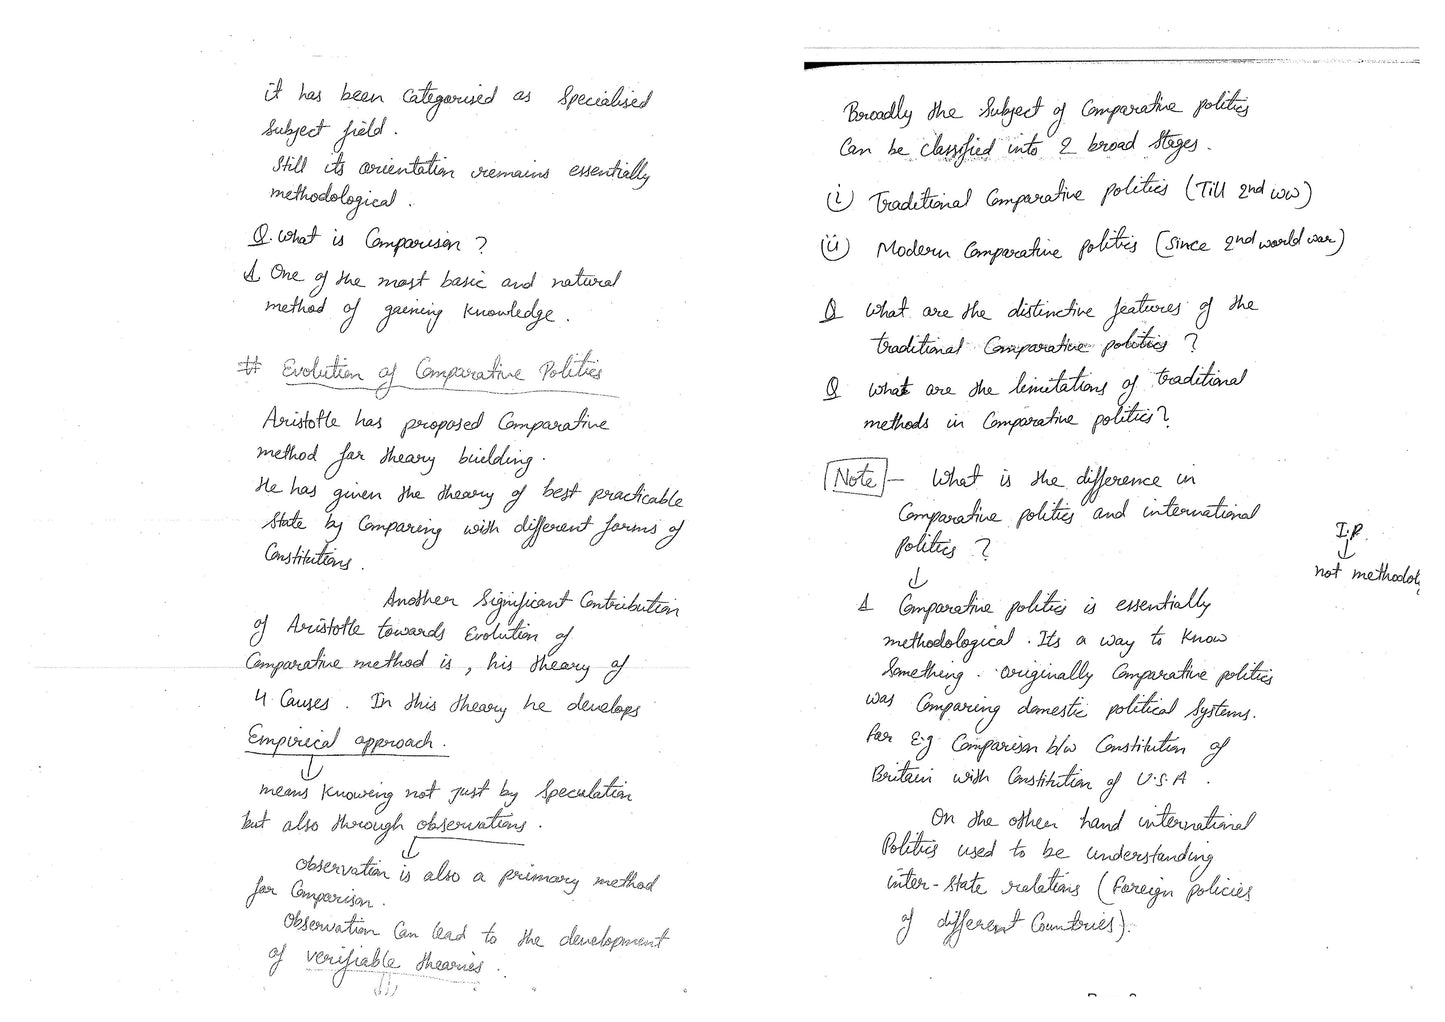 it has been Categorised as Specialised
Subject field.
Still its orientation remains essentially
methodological.
Q. What is Comparison?
A One of the most basic and natural
method of gaining Knowledge.
# Evolution of Comparative Politics
Aristotle has proposed Comparative
method for theory building.
He has given the theory of best practicable
State by Comparing with different forms of
Constitutions.
Another Significant Contribution
of Aristotle towards Evolution of
Comparative method is, his theory of
4 Causes. In this theory he develops
Empirical approach.
↓
means Knowing not just by Speculation
but also through observations.
↓
Observation is also a primary method
for Comparison.
Observation Can lead to the development
of verifiable theories.
Broadly the Subject of Comparative politics
Can be classified into 2 broad Stages.
(i) Traditional Comparative politics (Till 2nd WW)
(ii) Modern Comparative politics (Since 2nd world war)
Q What are the distinctive features of the
traditional Comparative politics?
Q What are the limitations of traditional
methods in Comparative politics?
Note - What is the difference in
Comparative politics and international
Politics?
↓
A Comparative politics is essentially
methodological. Its a way to Know
Something. Originally Comparative politics
was Comparing domestic political Systems.
For E.g Comparison b/w Constitution of
Britain with Constitution of U.S.A.
On the other hand international
Politics used to be understanding
inter-State relations (foreign policies
of different Countries).
I.R.
↓
not methodolo